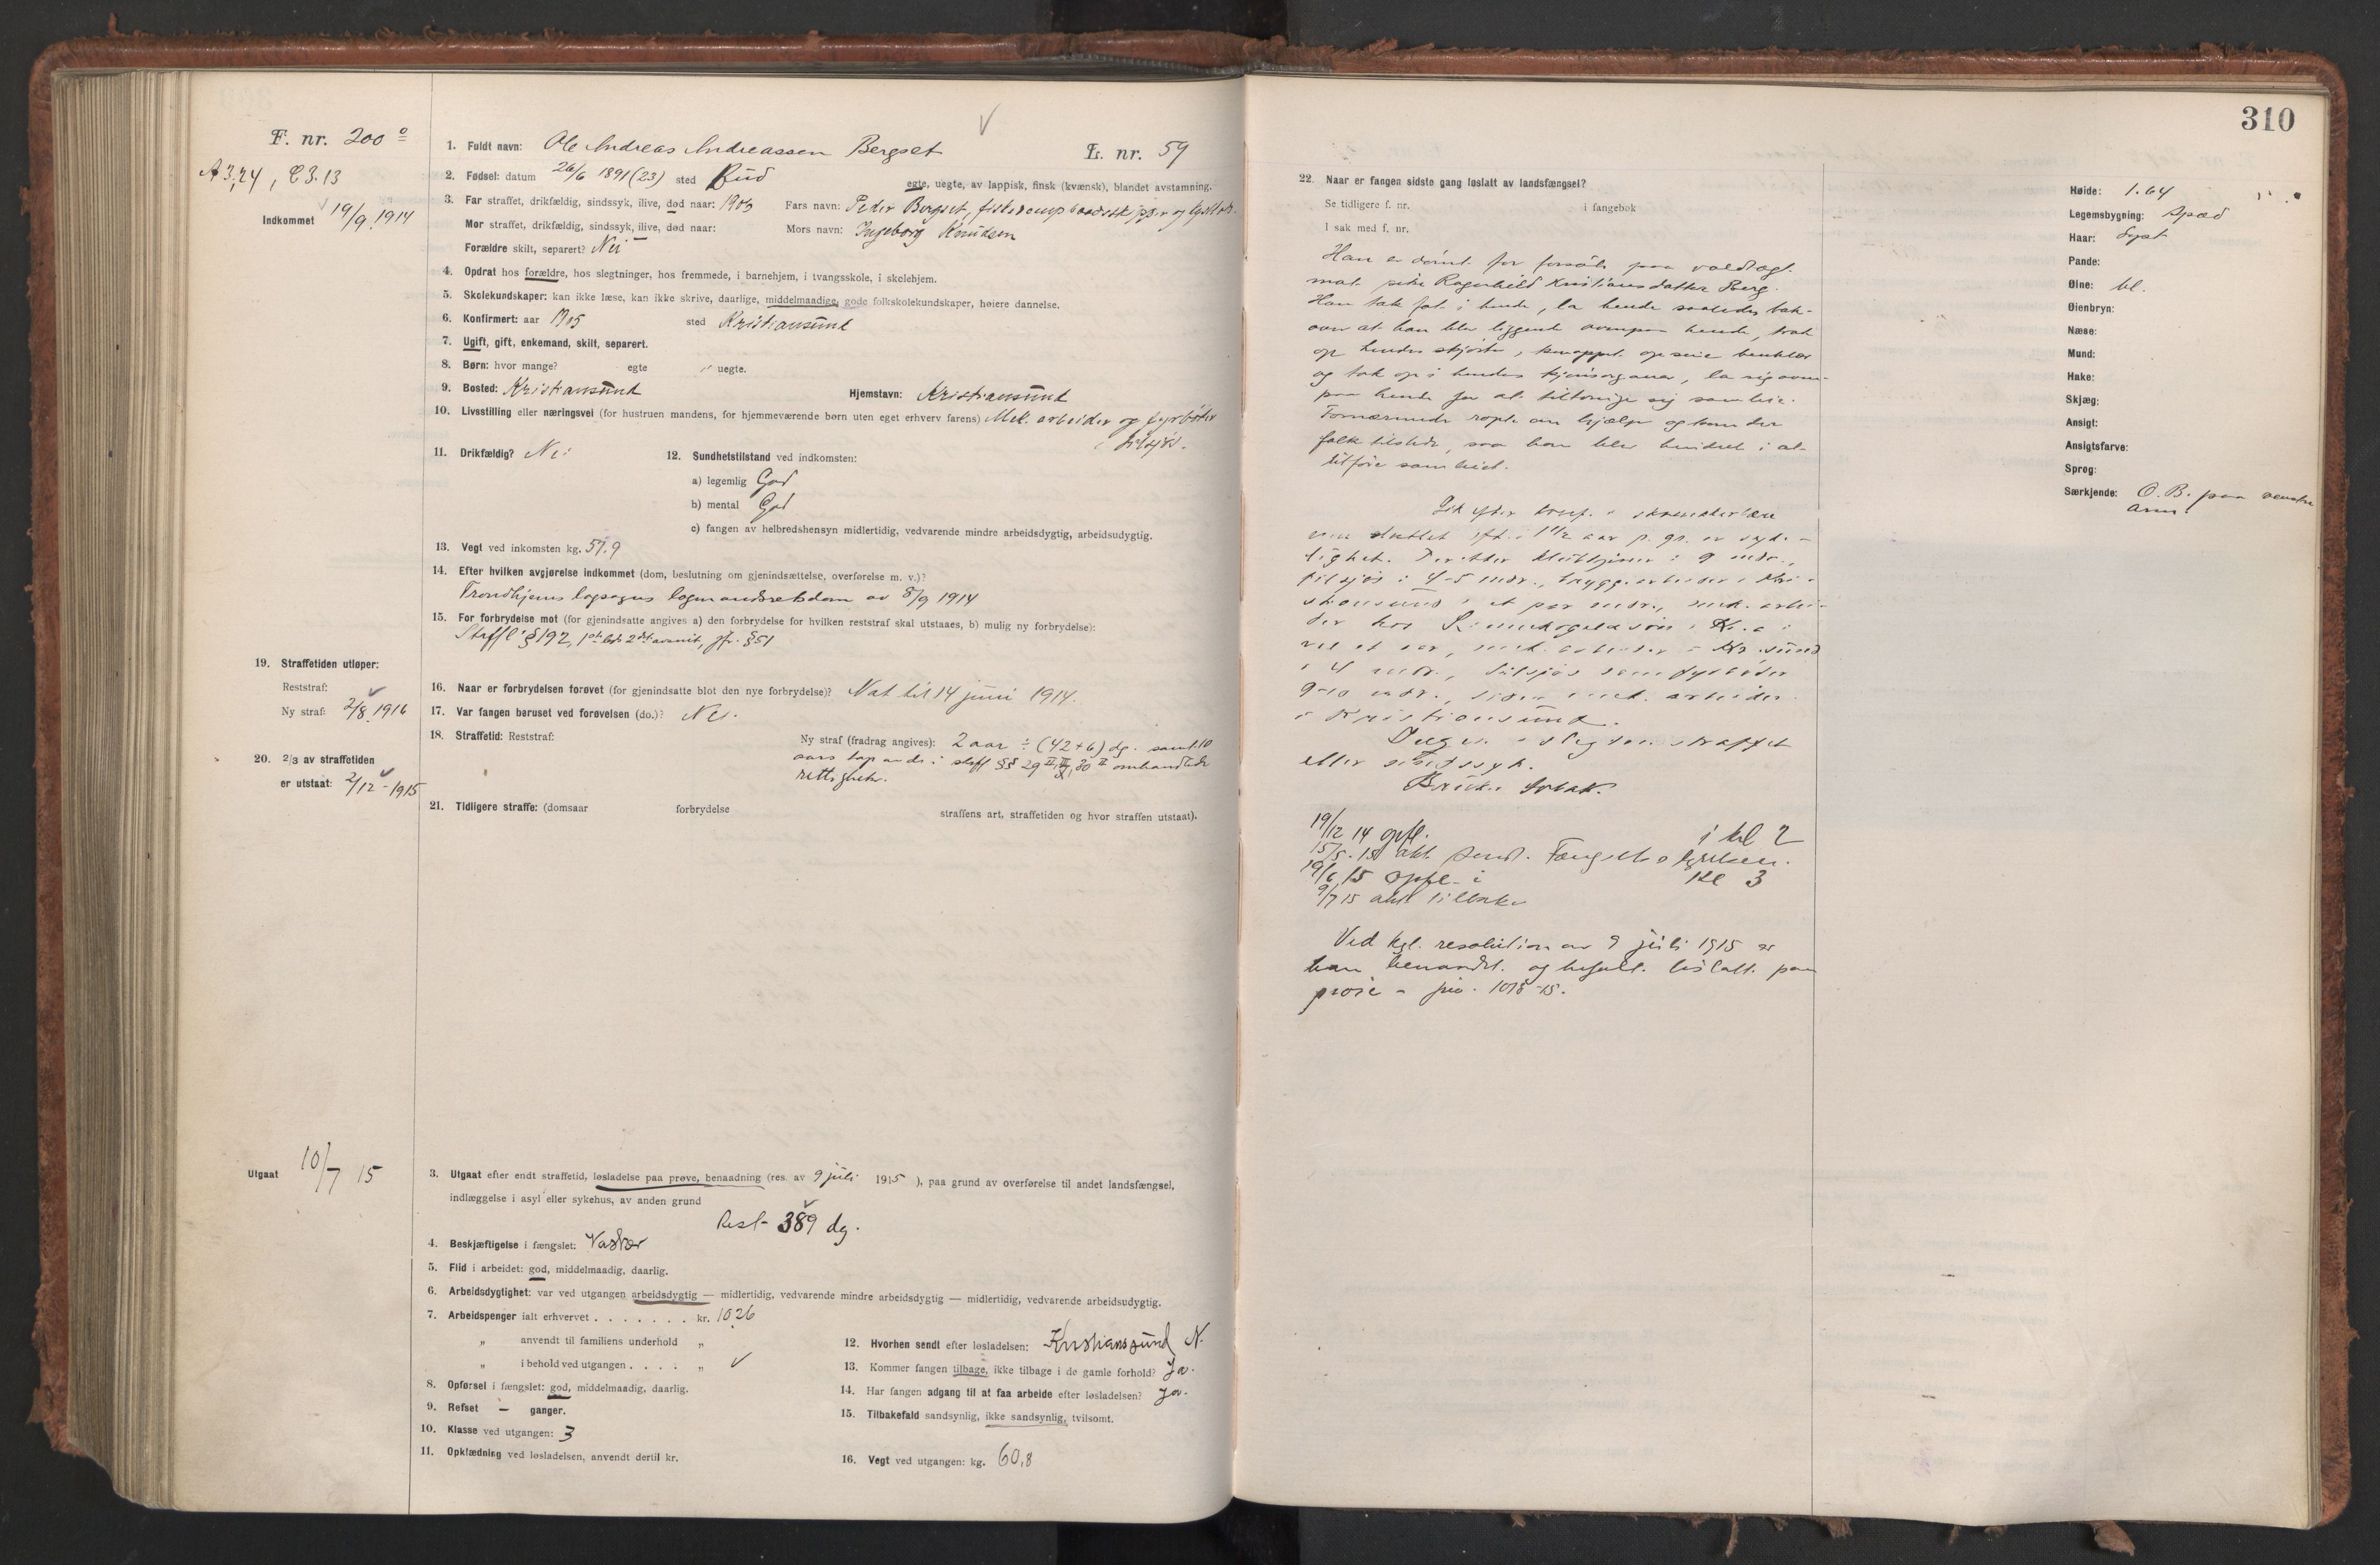 F. nr. 200 º
A 3,24, C 3.13
Indkommet 19/9 1914
1. Fuldt navn: Ole Andreas Andreassen Bergset L. nr. 59
2. Fødsel: datum 26/6 1891 (23) sted Bud egte, uegte, av lappisk, finsk (kvænsk), blandet avstamning.
3. Far straffet, drikfældig, sindssyk, ilive, død naar: 1903 Fars navn: Peder Bergset,
Mor straffet, drikfældig, sindssyk, ilive, død naar: Mors navn: Ingeborg Knudsen
Forældre skilt, separert? Nei
4. Opdrat hos forældre, hos slegtninger, hos fremmede, i barnehjem, i tvangsskole, i skolehjem.
5. Skolekundskaper: kan ikke læse, kan ikke skrive, daarlige, middelmaadige, gode folkskolekundskaper, høiere dannelse.
6. Konfirmert: aar 1905 sted Kristiansund
7. Ugift, gift, enkemand, skilt, separert.
8. Børn: hvor mange? egte " uegte.
9. Bosted: Kristiansund Hjemstavn: Kristiansund
10. Livsstilling eller næringsvei (for hustruen mandens, for hjemmeværende børn uten eget erhverv farens) Mek. arbeider og fyrbøter
tilsjøs.
11. Drikfældig? Nei 12. Sundhetstilstand ved indkomsten:
a) legemlig God
b) mental God
c) fangen av helbredshensyn midlertidig, vedvarende mindre arbeidsdygtig, arbeidsudygtig.
13. Vegt ved inkomsten kg. 57.9
14. Efter hvilken avgjørelse indkommet (dom, beslutning om gjenindsættelse, overførelse m. v.)?
Trondhjems lagsogns lagmandsretsdom av 8/9 1914
15. For forbrydelse mot (for gjenindsatte angives a) den forbrydelse for hvilken reststraf skal utstaaes, b) mulig ny forbrydelse):
Straffl. § 192, 1ste led 2det avsnit, jfr. § 51
16. Naar er forbrydelsen forøvet (for gjenindsatte blot den nye forbrydelse)? Nat til 14 juni 1914.
17. Var fangen beruset ved forøvelsen (do.)? Nei.
18. Straffetid: Reststraf: Ny straf (fradrag angives): 2 aar ÷ (42+6) dg. samt 10
aars tap av de i straffl §§ 29 II, III, 30 II omhandlede
rettigheter.
19. Straffetiden utløper:
Reststraf:
Ny straf: 2/8 1916
20. 2/3 av straffetiden
er utstaat: 2/12 - 1915
21. Tidligere straffe: (domsaar forbrydelse straffens art, straffetiden og hvor straffen utstaat).
Utgaat 10/7 15
3. Utgaat efter endt straffetid, løsladelse paa prøve, benaadning (res. av 9 juli 1915 ), paa grund av overførelse til andet landsfængsel,
indlæggelse i asyl eller sykehus, av anden grund
Rest 389 dg.
4. Beskjæftigelse i fængslet: Vasker
5. Flid i arbeidet: god, middelmaadig, daarlig.
6. Arbeidsdygtighet: var ved utgangen arbeidsdygtig — midlertidig, vedvarende mindre arbeidsdygtig — midlertidig, vedvarende arbeidsudygtig.
7. Arbeidspenger ialt erhvervet . . . . . . . kr. 10.26
" anvendt til familiens underhold "
" i behold ved utgangen . . . . "
8. Opførsel i fængslet: god, middelmaadig, daarlig.
9. Refset – ganger.
10. Klasse ved utgangen: 3
11. Opklædning ved løsladelsen, anvendt dertil kr.
12. Hvorhen sendt efter løsladelsen: Kristianssund N.
13. Kommer fangen tilbage, ikke tilbage i de gamle forhold? Ja.
14. Har fangen adgang til at faa arbeide efter løsladelsen? Ja.
15. Tilbakefald sandsynlig, ikke sandsynlig, tvilsomt.
16. Vegt ved utgangen: kg. 60,8
310
22. Naar er fangen sidste gang løslatt av landsfængsel?
Se tidligere f. nr. i fangebok
I sak med f. nr.
Han er dømt for forsøk paa voldtægt
mot pike Ragnhild Kristiansdatter Berg.
Han tok fat i hende, la hende saaledes bak-
over at han blev liggende ovenpaa hende, trak
op hendes skjørter, knappet op sine benklær
og tok op i hendes kjønsorganer, la sig oven-
paa hende for at tiltvinge sig samleie.
Fornærmede ropte om hjælp og kom der
folk tilstede, saa han blev hindret i at
utføre samleiet.
i 1 1/2 aar
i 9 mdr.,
tilsjøs i 4-5 mdr., bryggearbeider i Kri-
stiansund i et par mdr., mek. arbei-
der hos i Kr.a i
vel et aar, mek. arbeider i Kr.sund
i 4 mdr., tilsjøs som fyrbøter
9-10 mdr., siden mek. arbeider
i Kristiansund.
Ingen i slegten straffet
eller sindssyk.
Bruker tobak.
19/12 14 opfl. i kl 2
15/5. 15 akt. sendt. Fængselsstyrelsen.
19/6 15 opfl. i Kl 3
9/7 15 akt. tilbake
Ved kgl. resolution av 9 juli 1915 er
han benaadet og befalt løslatt paa
prøve - jnr. 1018-15.
Høide: 1.64
Legemsbygning: spæd
Haar: lyst
Pande:
Øine: bl.
Øienbryn:
Næse:
Mund:
Hake:
Skjæg:
Ansigt:
Ansigtsfarve:
Sprog:
Særkjende: O. B. paa venstre
arm.